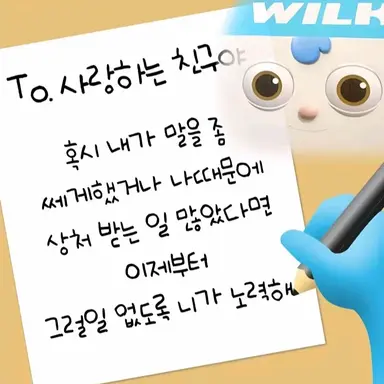 WILK
To. 사랑하는 친구야
혹시 내가 말을 좀
쎄게했거나 나때문에
상처 받는 일 많았다면
이제부터
그럴일 없도록 니가 노력해